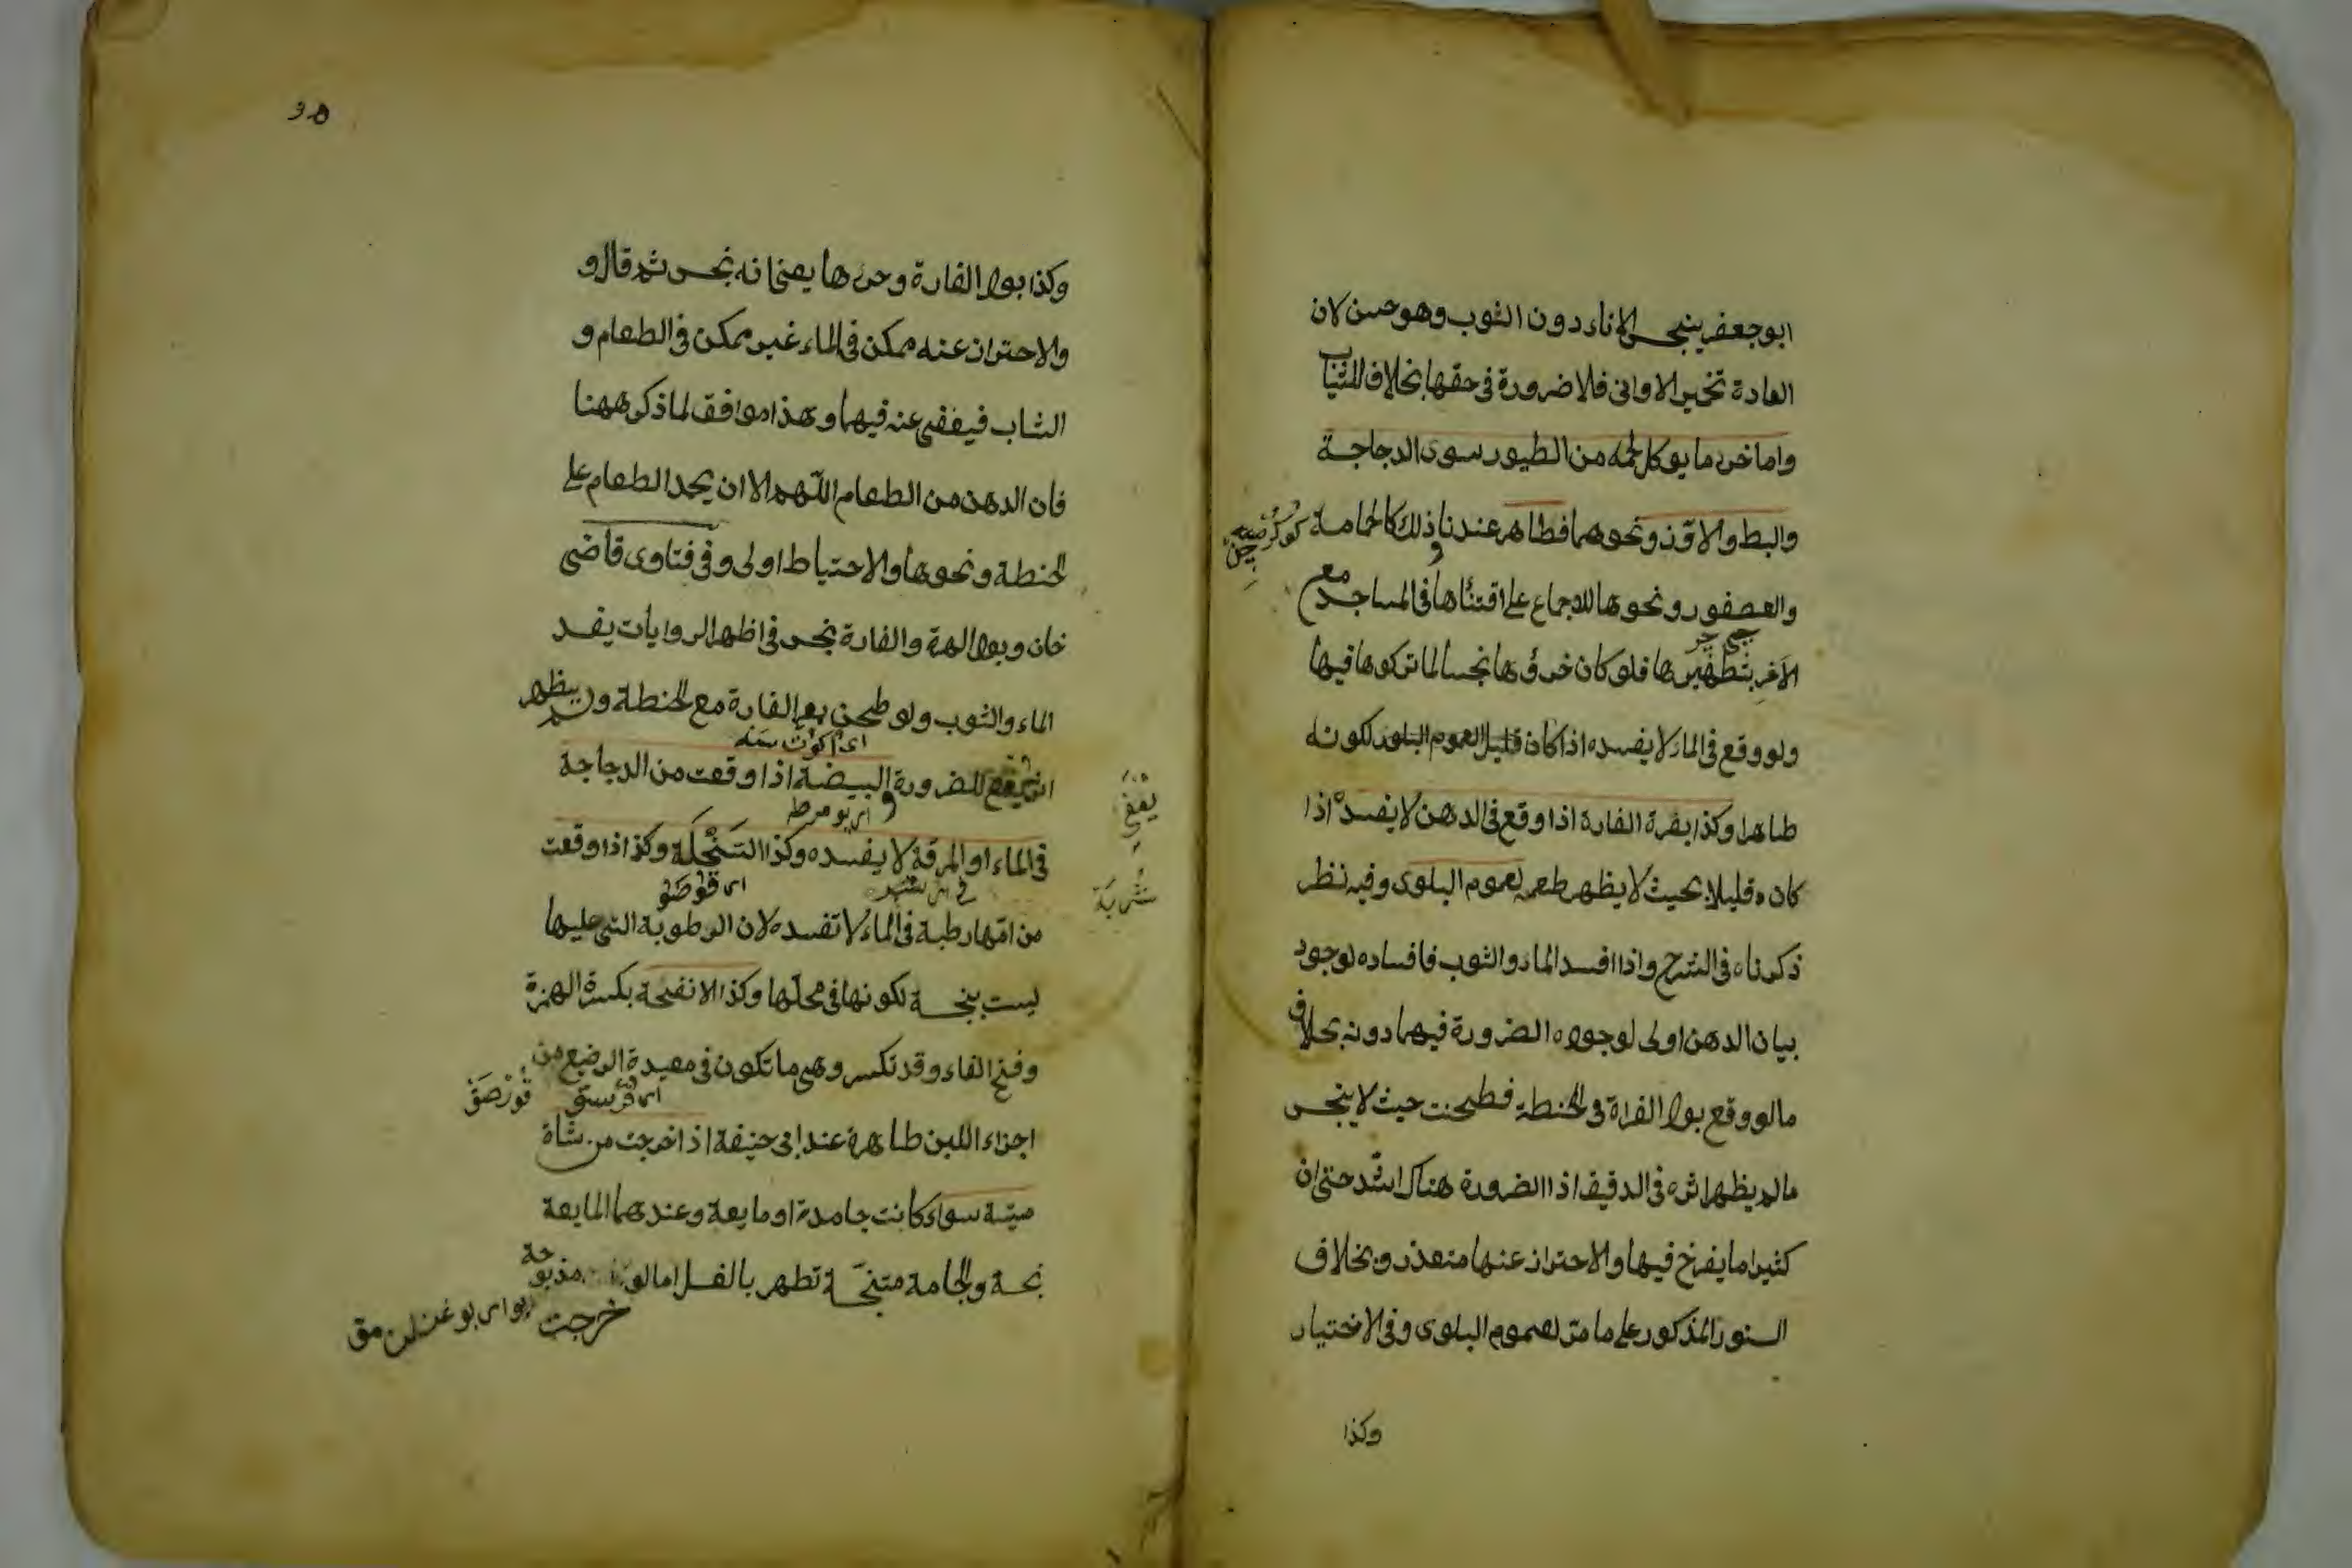 ابو جعفر ينجس الاناء دون الثوب وهو حسن لان
العادة تخمير الاوانى فلا ضرورة فى حقها بخلاف الثياب
واما خرء ما يوكل لحمه من الطيور سوى الدجاجة
والبط والاوز ونحوهما فطاهر عندنا وذلك كالحمامة
والعصفور ونحوها للاجماع على اقتنائها فى المساجد مع
الامر بتطهيرها فلو كان خرؤها نجسا لما تركوها فيها
ولو وقع فى الماء لا يفسده اذا كان قليل العموم البلوى لكونه
طاهرا وكذا بعرة الفارة اذا وقع فى الدهن لا يفسده اذا
كان قليلا بحيث لا يظهر طعمه لعموم البلوى وفيه نظر
ذكرناه فى الشرح واذا افسد الماء والثوب فافساده لوجود
بيان الدهن اولى لوجود الضرورة فيهما دونه بخلاف
ما لو وقع بول الفراة فى الحنطة فطحنت حيث لا ينجس
ما لم يظهر اثره فى الدقيق اذا الضرورة هناك اشد حتى ان
كثيرا ما يفرخ فيها والاحتراز عنها متعذر وبخلاف
السنور المذكور على ما مر لعموم البلوى وفى الاختيار
وكذا
وكذا بول الفارة وخرءها يعنى انه نجس ثم قال و
والاحتراز عنه ممكن فى الماء غير ممكن فى الطعام و
الثياب فيعفى عنه فيهما وهذا موافق لما ذكر ههنا
فان الدهن من الطعام اللهم الا ان يحمل الطعام على
الحنطة ونحوها والاحتياط اولى وفى فتاوى قاضى
خان وبول الهرة والفارة نجس فى اظهر الروايات يفسد
الماء والثوب ولو طحن بعر الفارة مع الحنطة ولم يظهر
اثره يعفى للضرورة البيضة اذا وقعت من الدجاجة
فى الماء او المرقة لا يفسده وكذا السخلة وكذا اذا وقعت
من امها رطبة فى الماء لا تفسده لان الرطوبة التى عليها
ليست بنجسة لكونها فى محلها وكذا الانفحة بكسرة الهمزة
وفتح الفاء وقد تكسر وهى ما تكون فى معدة الرضيع من
اجزاء اللبن طاهرة عند ابى حنيفة اذا خرجت من شاة
ميتة سواء كانت جامدة او مايعة وعندهما المايعة
نجسة والجامدة متنجسة تطهر بالغسل اما لو مذبوحة
خرجت
يعفى
شربة